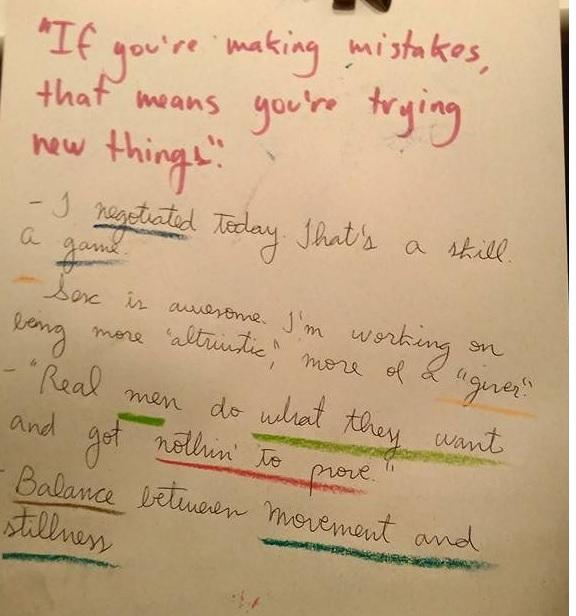 "If you're making mistakes,
that means you're trying
new things".
- I negotiated today. That's a skill.
a game.
- Sex is awesome. I'm working on
being more "altruistic", more of a "giver".
- "Real men do what they want
and got nothin' to prove."
- Balance between movement and
stillness